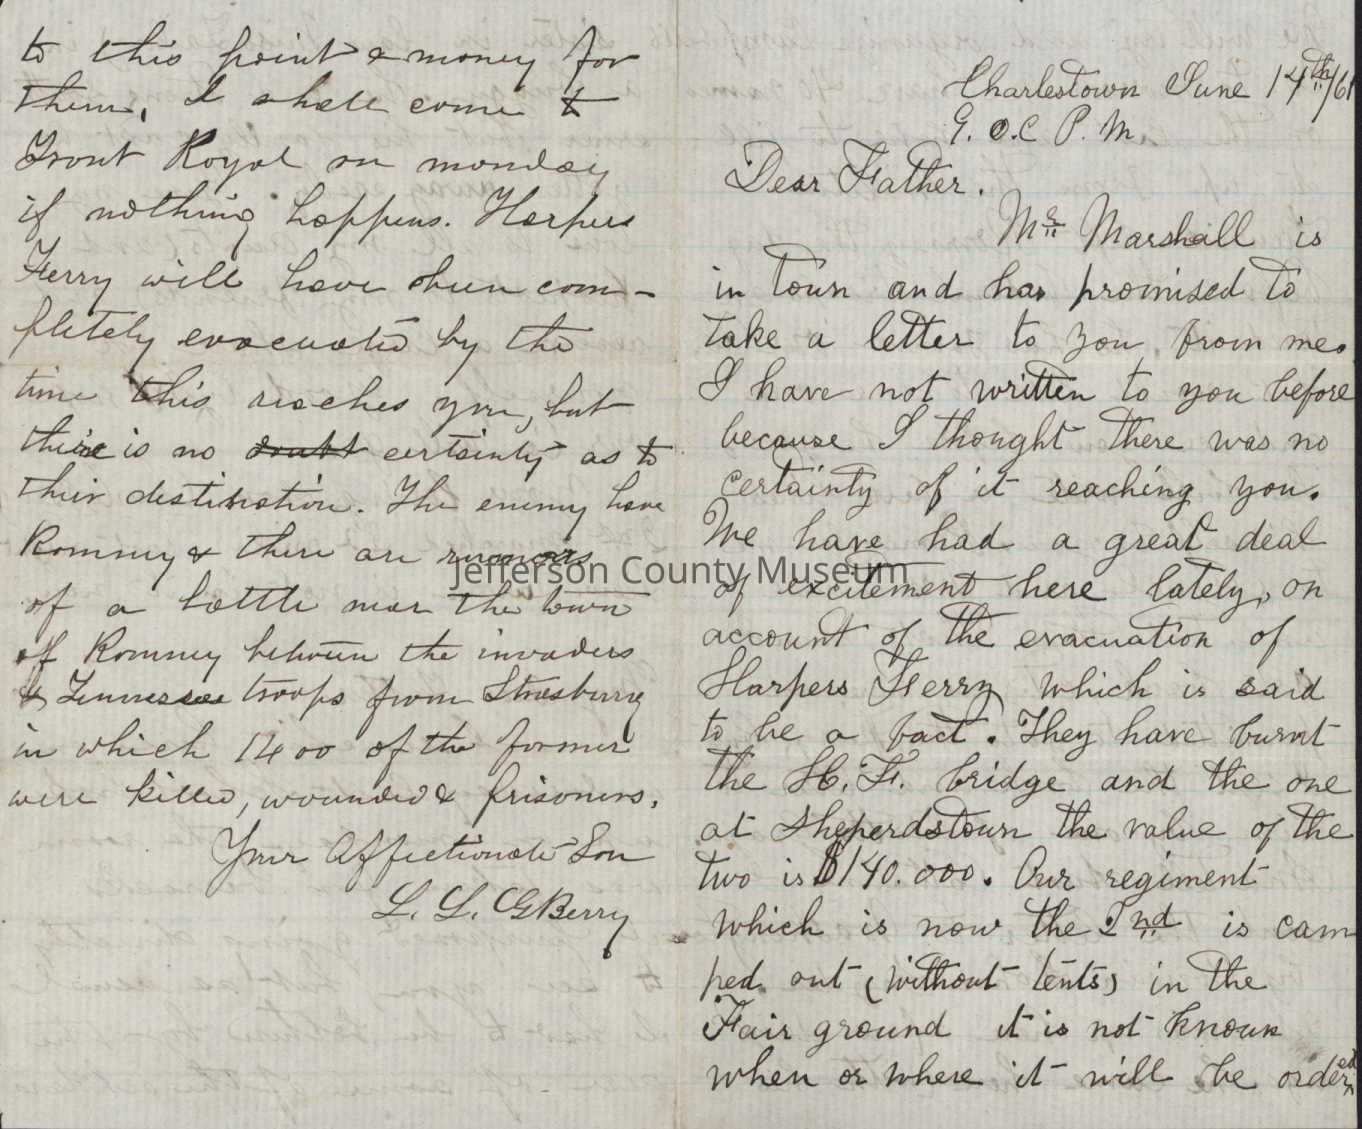 Charlestown June 14th/61
9. O.C P. M
Dear Father.
Mr Marshall is
in town and has promised to
take a letter to you from me.
I have not written to you before
because I thought there was no
certainty of it reaching you.
We have had a great deal
of excitement here lately, on
account of the evacuation of
Harpers Ferry which is said
to be a fact. They have burnt
the H. F. bridge and the one
at Sheperdstown the value of the
two is $140.000. Our regiment
which is now the 2nd is cam
ped out (without tents) in the
Fair ground it is not known
when or where it will be ordered
to this point & money for
them, I shall come to
Front Royal on monday
if nothing happens. Harpers
Ferry will have been com-
pletely evacuated by the
time this reaches you, but
there is no doubt certainty as to
their destination. The enemy have
Romney & there are rumors
of a battle near the town
of Romney between the invaders
& Tennessee troops from Strasburg
in which 1400 of the former
were killed, wounded & prisoners.
Your Affectionate Son
L. L.
Jefferson County Museum